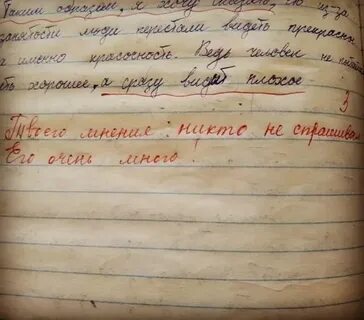 Таким образом, я хочу сказать, что из-за
занятости люди перестали видеть прекрасное
а именно красосность. Ведь человек не пытается
хорошее, а сразу видет плохое
3
Твоего мнения никто не спрашивал
Его очень много!